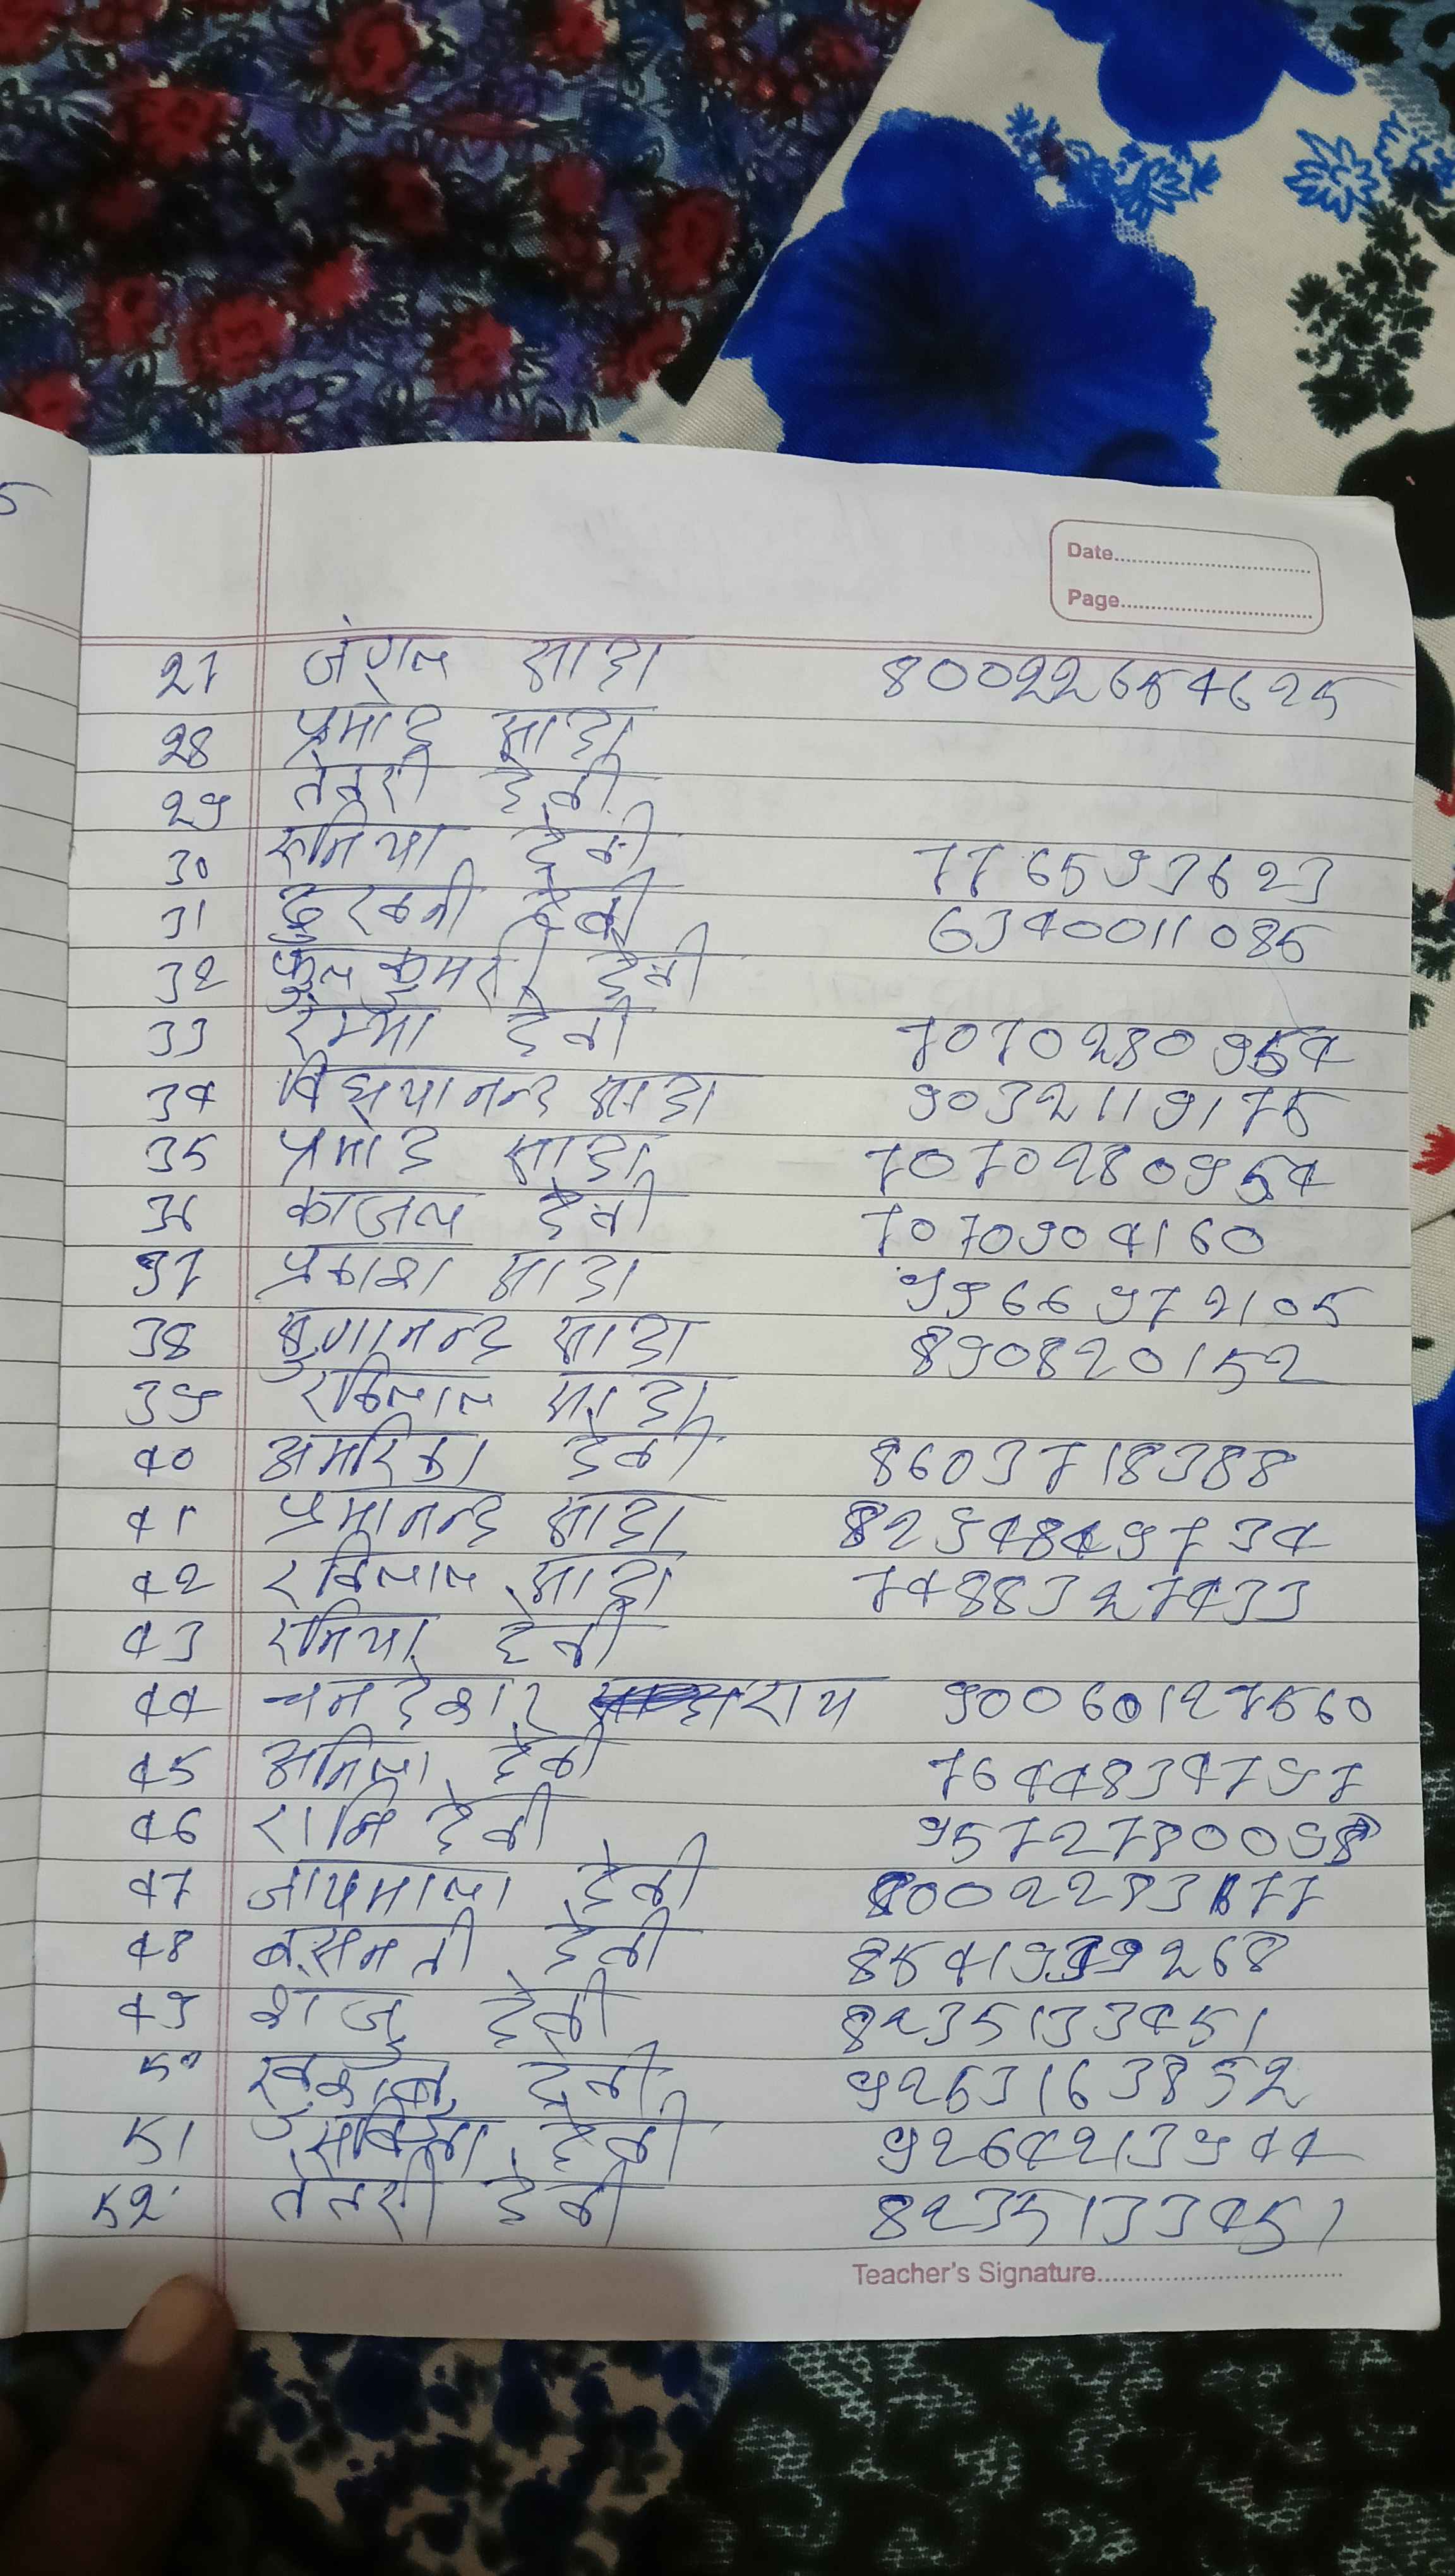 5
Date
Page
27 जंगल सादा 80022654625
28 प्रमोद सादा
29 तेतरी देवी
30 रुनिया देवी 7765993623
31 दुरवनी देवी 6340011085
32 फुल कुमारी देवी
33 रम्भा देवी 7070280954
34 विधयानन्द सादा 9032119175
35 प्रमोद सादा 7070280954
36 काजल देवी 7070904160
37 प्रकाश सादा 9966972105
38 सादा 890820152
39 रविलाल सादा
40 अमरिका देवी 8603718388
41 प्रमानन्द सादा 8294849734
42 रविलाल सादा 7488327433
43 रनिया देवी
44 चनदेशर राय 90060127560
45 अनिला देवी 7644834797
46 रानि देवी 9572780098
47 जायमाला देवी 8002283677
48 बसमनती देवी 268
49 शंजु देवी 8235133451
50 देवी 9263163852
51 देवी 9264213944
52 तेतरी देवी 8235133451
Teacher's Signature